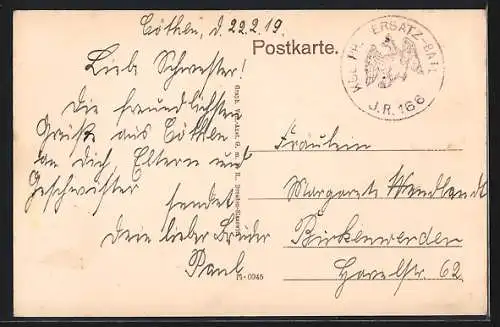 Cöthen, d. 22.2.19.
Postkarte.
KGL. PR. ERSATZ-BATL.
J.R. 166
Lieb. Schwester!
Die freundlichsten
Grüße aus Cöthen
an dich, Eltern und
Geschwister
sendet
Dein lieber Bruder
Paul
Fräulein
Margarete Wendlandt
Birkenwerder
Havelstr. 62.
M-0945